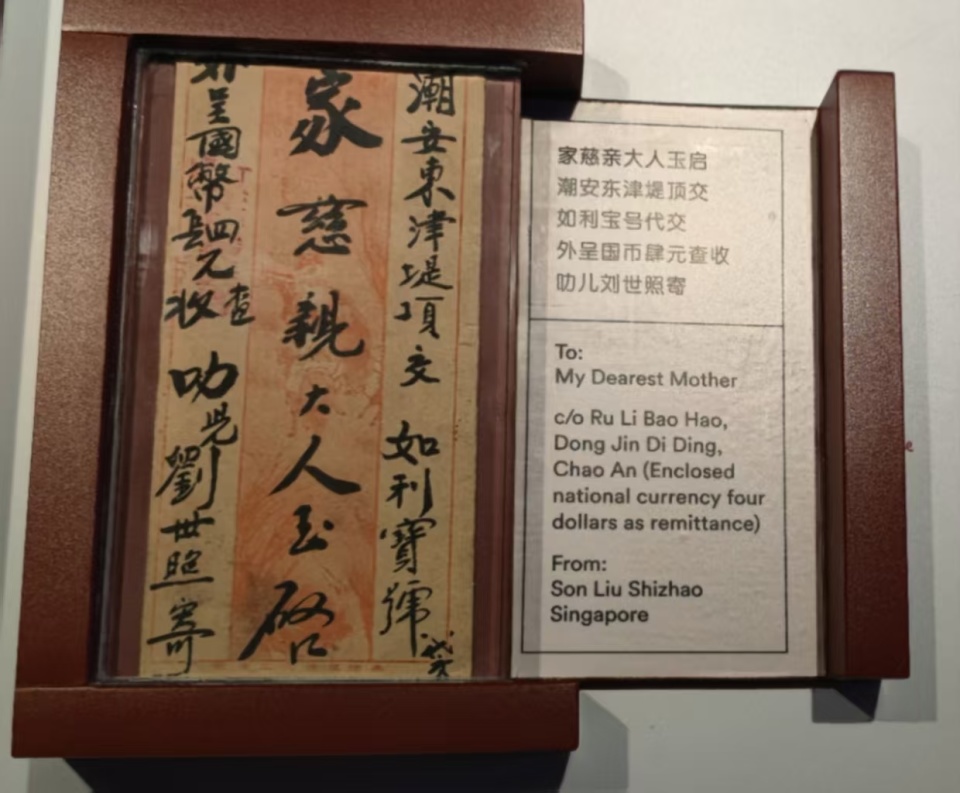 潮安東津堤頂交 如利寶號代交
家慈親大人玉啓
外呈國幣肆元查收 叻兒劉世照寄
家慈亲大人玉启
潮安东津堤顶交
如利宝号代交
外呈国币肆元查收
叻儿刘世照寄
To:
My Dearest Mother
c/o Ru Li Bao Hao,
Dong Jin Di Ding,
Chao An (Enclosed
national currency four
dollars as remittance)
From:
Son Liu Shizhao
Singapore